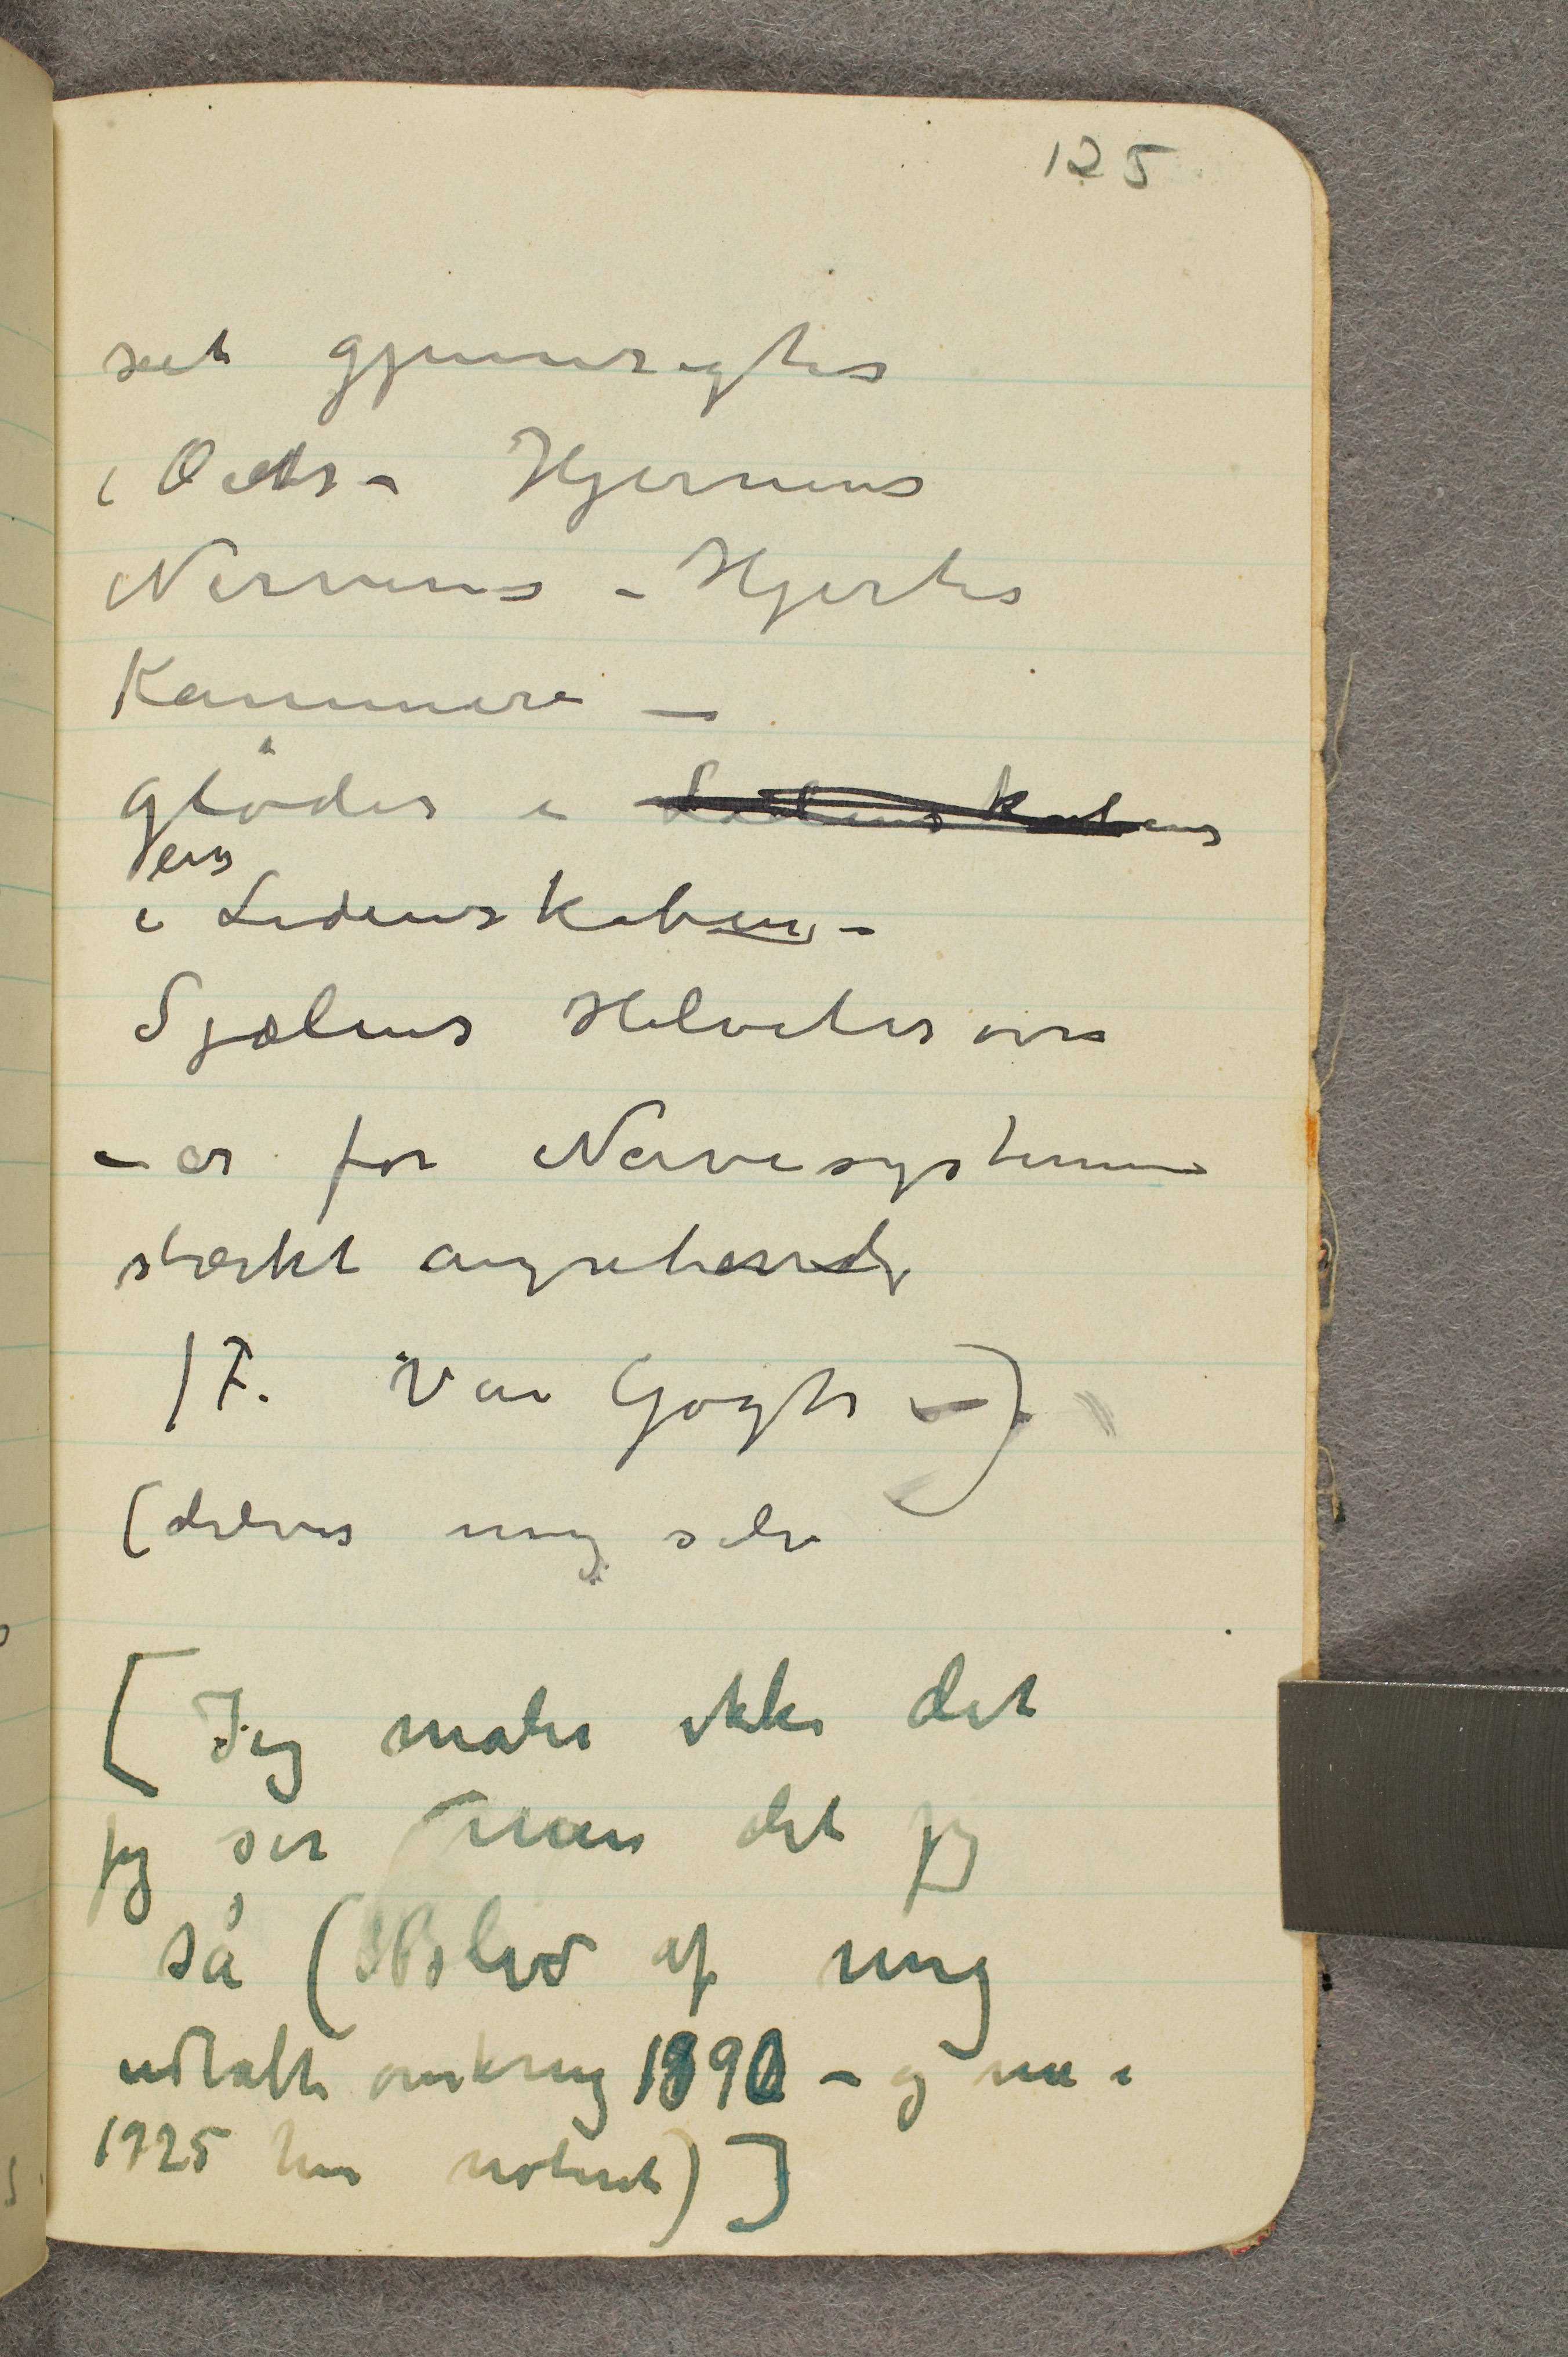 125
set gjennemsigtes
i Øiets – Hjernens
Nervernes – Hjertes
Kammere –
glødes i Lidenskabens
ens
i Lidenskaben –
Sjælens Helvetesovn
– er for Nervesystemene
stærkt angribende
/F. Van Gogh –)
(delvis mig selv
[Jeg maler ikke det
jeg ser men det jeg
så (Blev af mig
udtalt omkring 1890 – og nu i
1925 her noteret)]